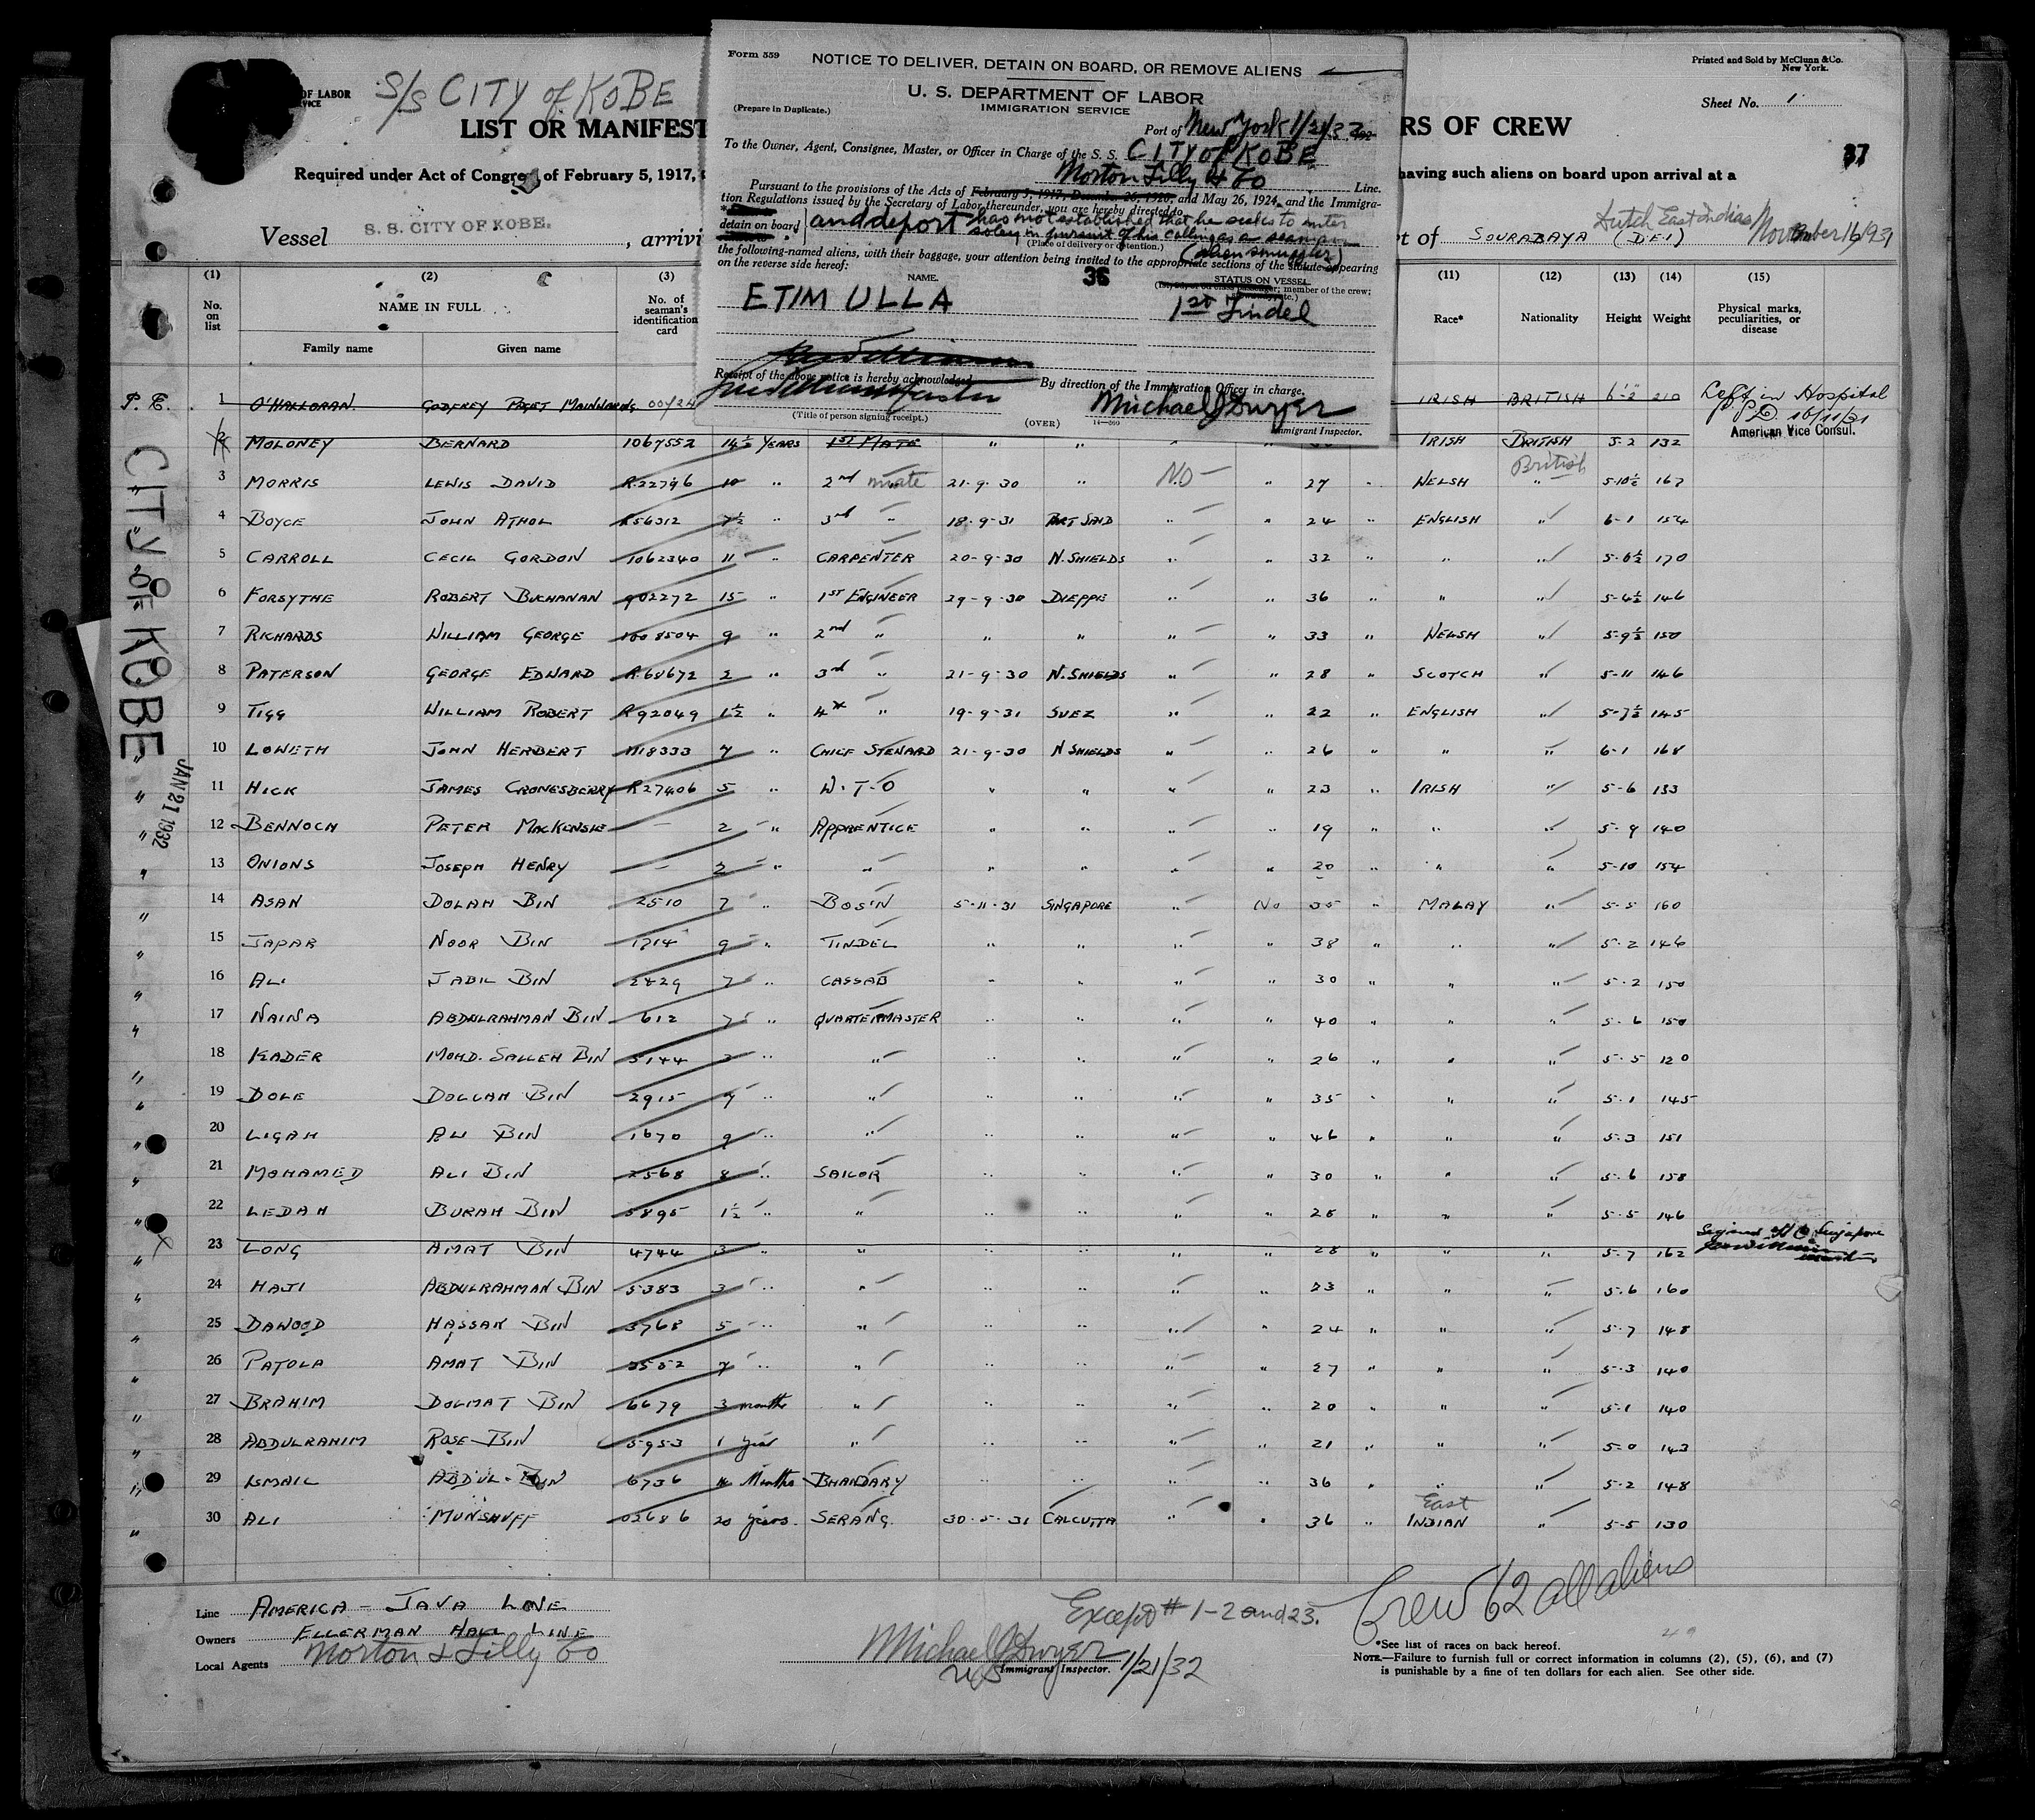 Form 559
NOTICE TO DELIVER, DETAIN ON BOARD, OR REMOVE ALIENS
U. S. DEPARTMENT OF LABOR
IMMIGRATION SERVICE
(Prepare in Duplicate.)
Port of New York 1/21/32
To the Owner, Agent, Consignee, Master, or Officer in Charge of the S. S. CITY of KOBE
Morton Lilly & Co Line.
Pursuant to the provisions of the Acts of February 5, 1917, December 26, 1920, and May 26, 1924, and the Immigra-
tion Regulations issued by the Secretary of Labor thereunder, you are hereby directed to
detain on board and deport has not established that he seeks to enter
solely in pursuit of his calling as a seaman
(Place of delivery or detention.)
(alien smuggler)
the following-named aliens, with their baggage, your attention being invited to the appropriate sections of the statute appearing
on the reverse side hereof:
NAME.
36
STATUS ON VESSEL
member of the crew;
ETIM ULLA 1st Tindel
Receipt of the above notice is hereby acknowledged
By direction of the Immigration Officer in charge,
Michael J Dwyer
(Title of person signing receipt.)
(OVER)
Immigrant Inspector.
Printed and Sold by McClunn & Co.
New York.
Sheet No. 1
37
OF LABOR
S/S CITY of KOBE
LIST OR MANIFEST
RS OF CREW
Required under Act of Congress of February 5, 1917,
having such aliens on board upon arrival at a
Vessel S. S. CITY OF KOBE. , arrivi
t of SOURABAYA (DEI) Dutch East Indias November 16 1931
(1) (2) (3) (11) (12) (13) (14) (15)
No. on list
NAME IN FULL
Family name Given name
No. of seaman's identification card
Race* Nationality Height Weight
Physical marks, peculiarities, or disease
P. E. 1 O'HALLORAN. GODFREY PAGET MAINWARING 00/24 IRISH BRITISH 6-2 210 Left in Hospital
16/11/31
American Vice Consul.
2 MOLONEY BERNARD 1067552 14½ YEARS 1ST MATE " " " " IRISH BRITISH 5-2 132
3 MORRIS LEWIS DAVID R.22796 10 " 2nd mate 21-9-30 " NO " 27 " WELSH British " 5-10½ 167
4 BOYCE JOHN ATHOL R56312 7½ " 3rd " 18-9-31 PORT SAID " " 24 " ENGLISH " 6-1 154
5 CARROLL CECIL GORDON 1062340 11 " CARPENTER 20-9-30 N. SHIELDS " " 32 " " " 5-6½ 170
6 FORSYTHE ROBERT BUCHANAN 902272 15 " 1ST ENGINEER 29-9-30 DIEPPE " " 36 " " " 5-4½ 146
7 RICHARDS WILLIAM GEORGE 1008504 9 " 2nd " " " " " 33 " WELSH " 5-9½ 150
8 PATERSON GEORGE EDWARD R.68672 2 " 3rd " 21-9-30 N. SHIELDS " " 28 " SCOTCH " 5-11 146
9 TIGG WILLIAM ROBERT R92049 1½ " 4th " 19-9-31 SUEZ " " 22 " ENGLISH " 5-7½ 145
10 LOWETH JOHN HERBERT 1118333 7 " CHIEF STEWARD 21-9-30 N SHIELDS " " 26 " " " 6-1 168
11 HICK JAMES CRONESBERRY R27406 5 " W.T.O " " " " 23 " IRISH " 5-6 133
12 BENNOCH PETER MACKENSIE — 2 " APPRENTICE " " " " 19 " " " 5-9 140
13 ONIONS JOSEPH HENRY — 2 " " " " " " 20 " " " 5-10 154
14 ASAN DOLAH BIN 2510 7 " BOS'N 5-11-31 SINGAPORE " No 35 " MALAY " 5-5 160
15 JAPAR NOOR BIN 1714 9 " TINDEL " " " " 38 " " " 5-2 146
16 ALI JADIL BIN 2829 7 " CASSAB " " " " 30 " " " 5-2 150
17 NAINA ABDULRAHMAN BIN 612 7 " QUARTERMASTER " " " " 40 " " " 5-6 150
18 KADER MOHD. SALLEH BIN 5144 3 " " " " " " 26 " " " 5-5 120
19 DOLE DOLLAH BIN 2915 9 " " " " " " 35 " " " 5-1 145
20 LIGAH ALI BIN 1670 9 " " " " " " 46 " " " 5-3 151
21 MOHAMED ALI BIN 2568 8 " SAILOR " " " " 30 " " " 5-6 158
22 LEDAH BURAH BIN 5895 1½ " " " " " " 28 " " " 5-5 146
23 LONG AMAT BIN 4744 3 " " " " " " 28 " " " 5-7 162 Signed off @ Singapore
24 HAJI ABDULRAHMAN BIN 5383 3 " " " " " " 23 " " " 5-6 160
25 DAWOOD HASSAN BIN 3768 5 " " " " " " 24 " " " 5-7 148
26 PATOLA AMAT BIN 3552 7 " " " " " " 27 " " " 5-3 140
27 BRAHIM DOLMAT BIN 6679 3 months " " " " " 20 " " " 5-1 140
28 ABDULRAHIM ROSE BIN 5953 1 year " " " " " 21 " " " 5-0 143
29 ISMAIL ABDUL BIN 6736 Months BHANDARY " " " " 36 " " " 5-2 148
30 ALI MUNSHUFF 02686 20 years. SERANG. 30-5-31 CALCUTTA " " 36 " East INDIAN " 5-5 130
CITY OF KOBE
JAN 21 1932
Line AMERICA - JAVA LINE
Owners ELLERMAN HALL LINE
Local Agents Morton & Lilly Co
Except # 1-2 and 23.
Crew 62 all aliens
Michael J Dwyer
Immigrant Inspector. 1/21/32
*See list of races on back hereof.
NOTE.—Failure to furnish full or correct information in columns (2), (5), (6), and (7)
is punishable by a fine of ten dollars for each alien. See other side.